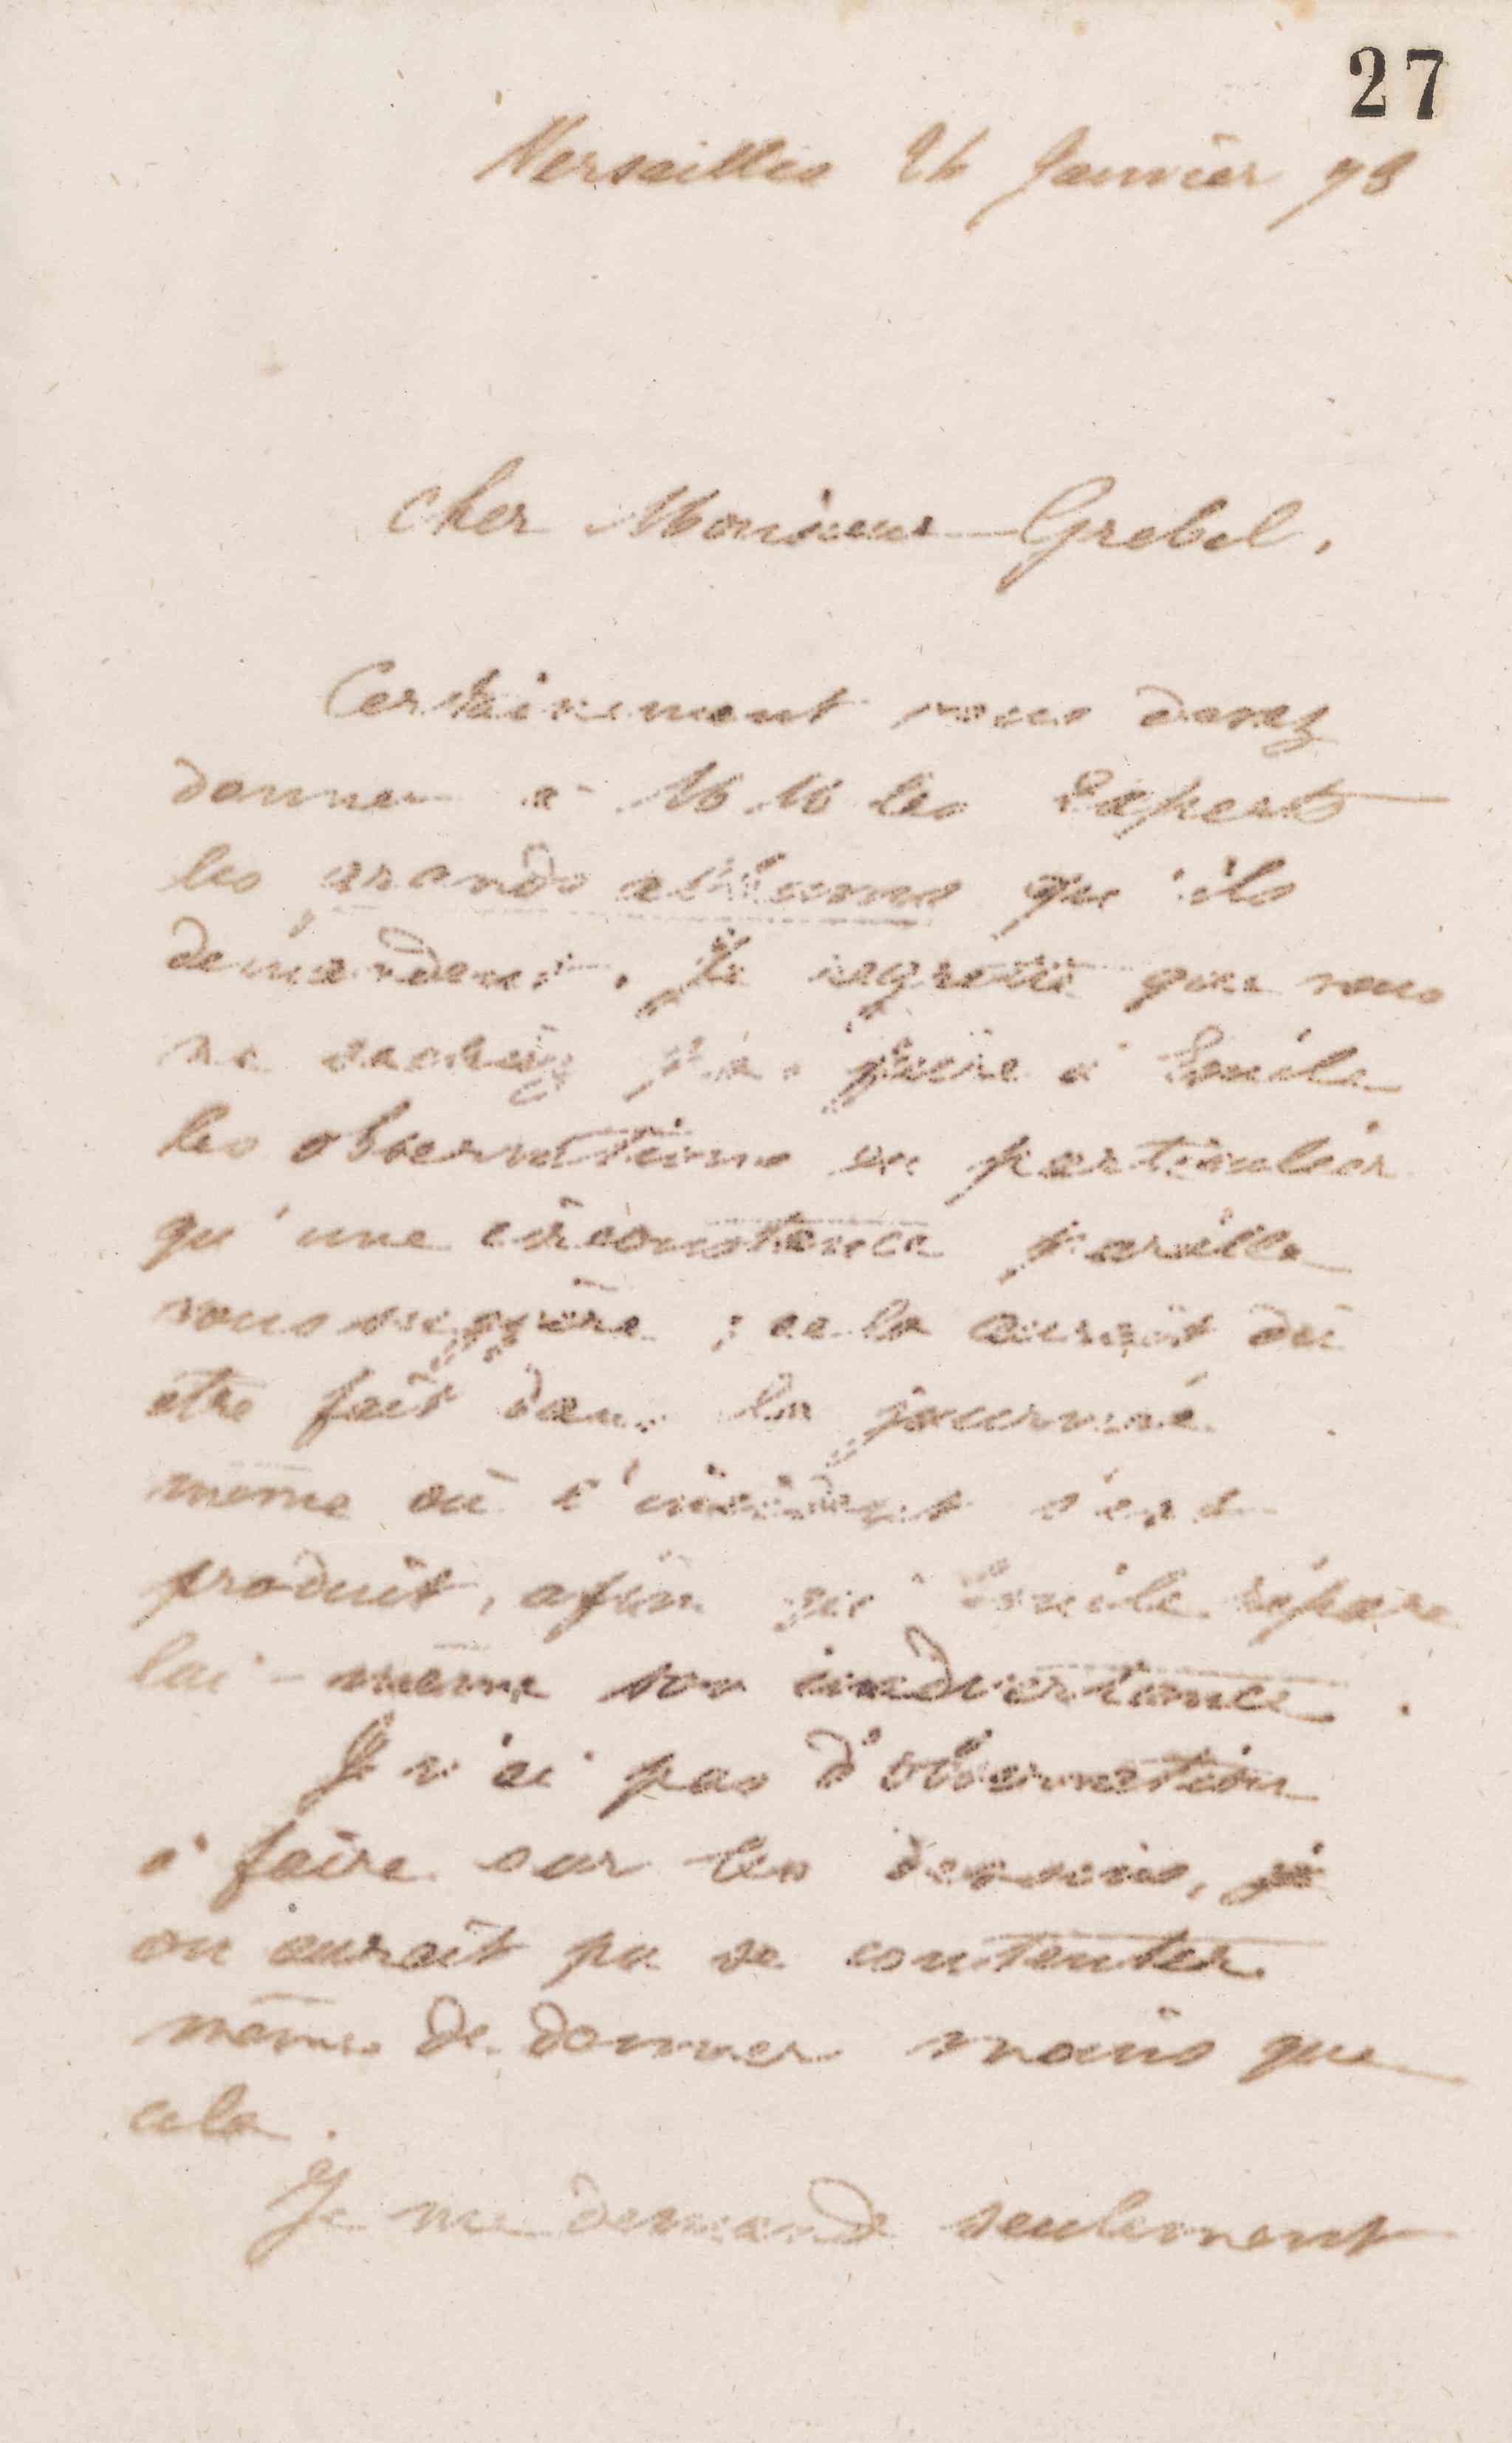 27
Versailles 24 Janvier 78
Cher Monsieur Grebel,
Certainement vous devez
donner à MM les Experts
les grands albums qu'ils
demandent. Je regrette que vous
ne sachiez pas faire à Émile
les observations en particulier
qu'une circonstance pareille
vous suggère ; cela aurait dû
être fait dans la journée
même où l'incident s'est
produit, afin qu'Émile répare
lui-même son inadvertance.
Je n'ai pas d'observation
à faire sur les dessins,
on aurait pu se contenter
même de donner moins que
cela.
Je me demande seulement